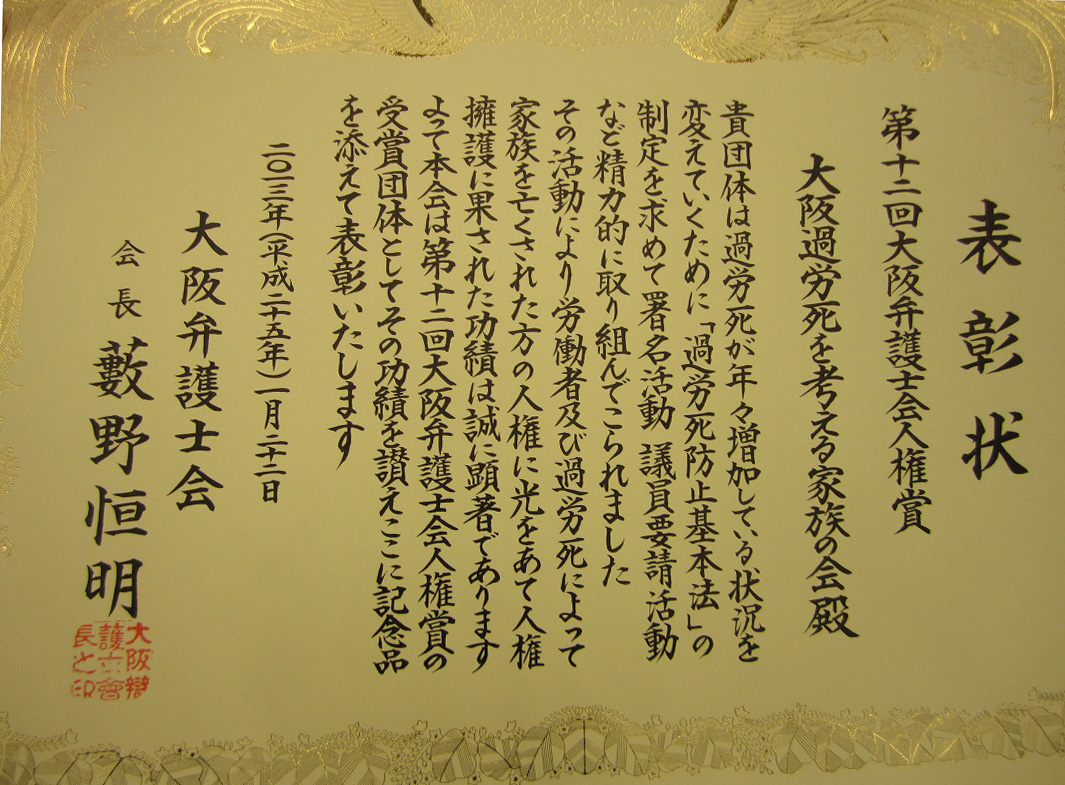 表彰状
第十二回大阪弁護士会人権賞
大阪過労死を考える家族の会殿
貴団体は過労死が年々増加している状況を
変えていくために「過労死防止基本法」の
制定を求めて署名活動 議員要請活動
など精力的に取り組んでこられました
その活動により労働者及び過労死によって
家族を亡くされた方の人権に光をあて人権
擁護に果された功績は誠に顕著であります
よって本会は第十二回大阪弁護士会人権賞の
受賞団体としてその功績を讃えここに記念品
を添えて表彰いたします
二〇一三年(平成二十五年)一月二十二日
大阪弁護士会
会長 藪野恒明
大阪辯
護士會
長之印